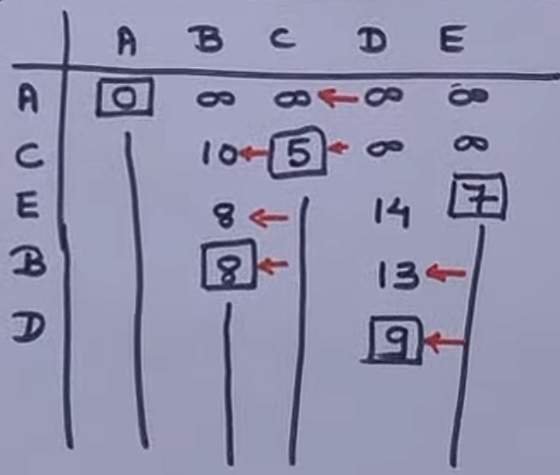 A B C D E
A 0 ∞ ∞ ∞ ∞
C 10 5 ∞ ∞
E 8 14 7
B 8 13
D 9